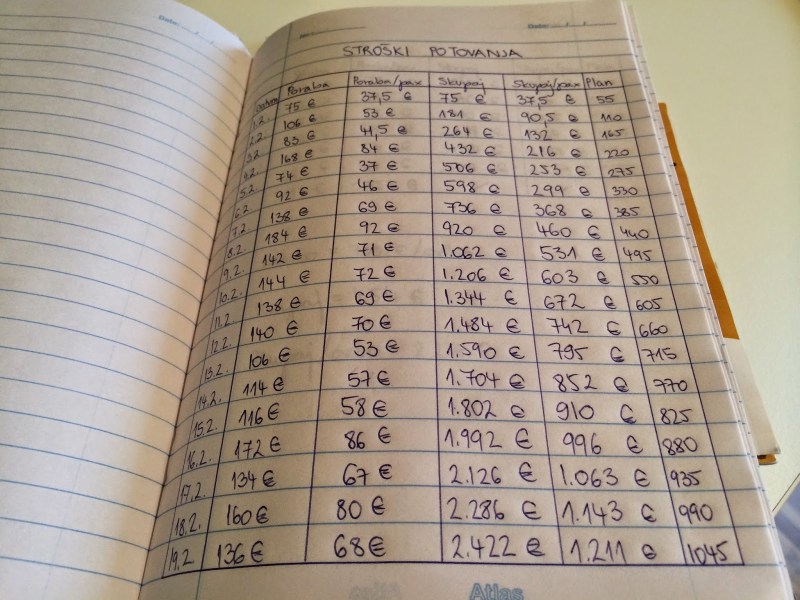 Date: / /
No.
Date: / /
STROŠKI POTOVANJA
Datum Poraba Poraba/pax Skupaj Skupaj/pax Plan
1.2. 75 € 37,5 € 75 € 37,5 € 55
2.2. 106 € 53 € 181 € 90,5 € 110
3.2. 83 € 41,5 € 264 € 132 € 165
4.2. 168 € 84 € 432 € 216 € 220
5.2. 74 € 37 € 506 € 253 € 275
6.2. 92 € 46 € 598 € 299 € 330
7.2. 138 € 69 € 736 € 368 € 385
8.2. 184 € 92 € 920 € 460 € 440
9.2. 142 € 71 € 1.062 € 531 € 495
10.2. 144 € 72 € 1.206 € 603 € 550
11.2. 138 € 69 € 1.344 € 672 € 605
12.2. 140 € 70 € 1.484 € 742 € 660
13.2. 106 € 53 € 1.590 € 795 € 715
14.2. 114 € 57 € 1.704 € 852 € 770
15.2. 116 € 58 € 1.802 € 910 € 825
16.2. 172 € 86 € 1.992 € 996 € 880
17.2. 134 € 67 € 2.126 € 1.063 € 935
18.2. 160 € 80 € 2.286 € 1.143 € 990
19.2 136 € 68 € 2.422 € 1.211 € 1045
Atlas